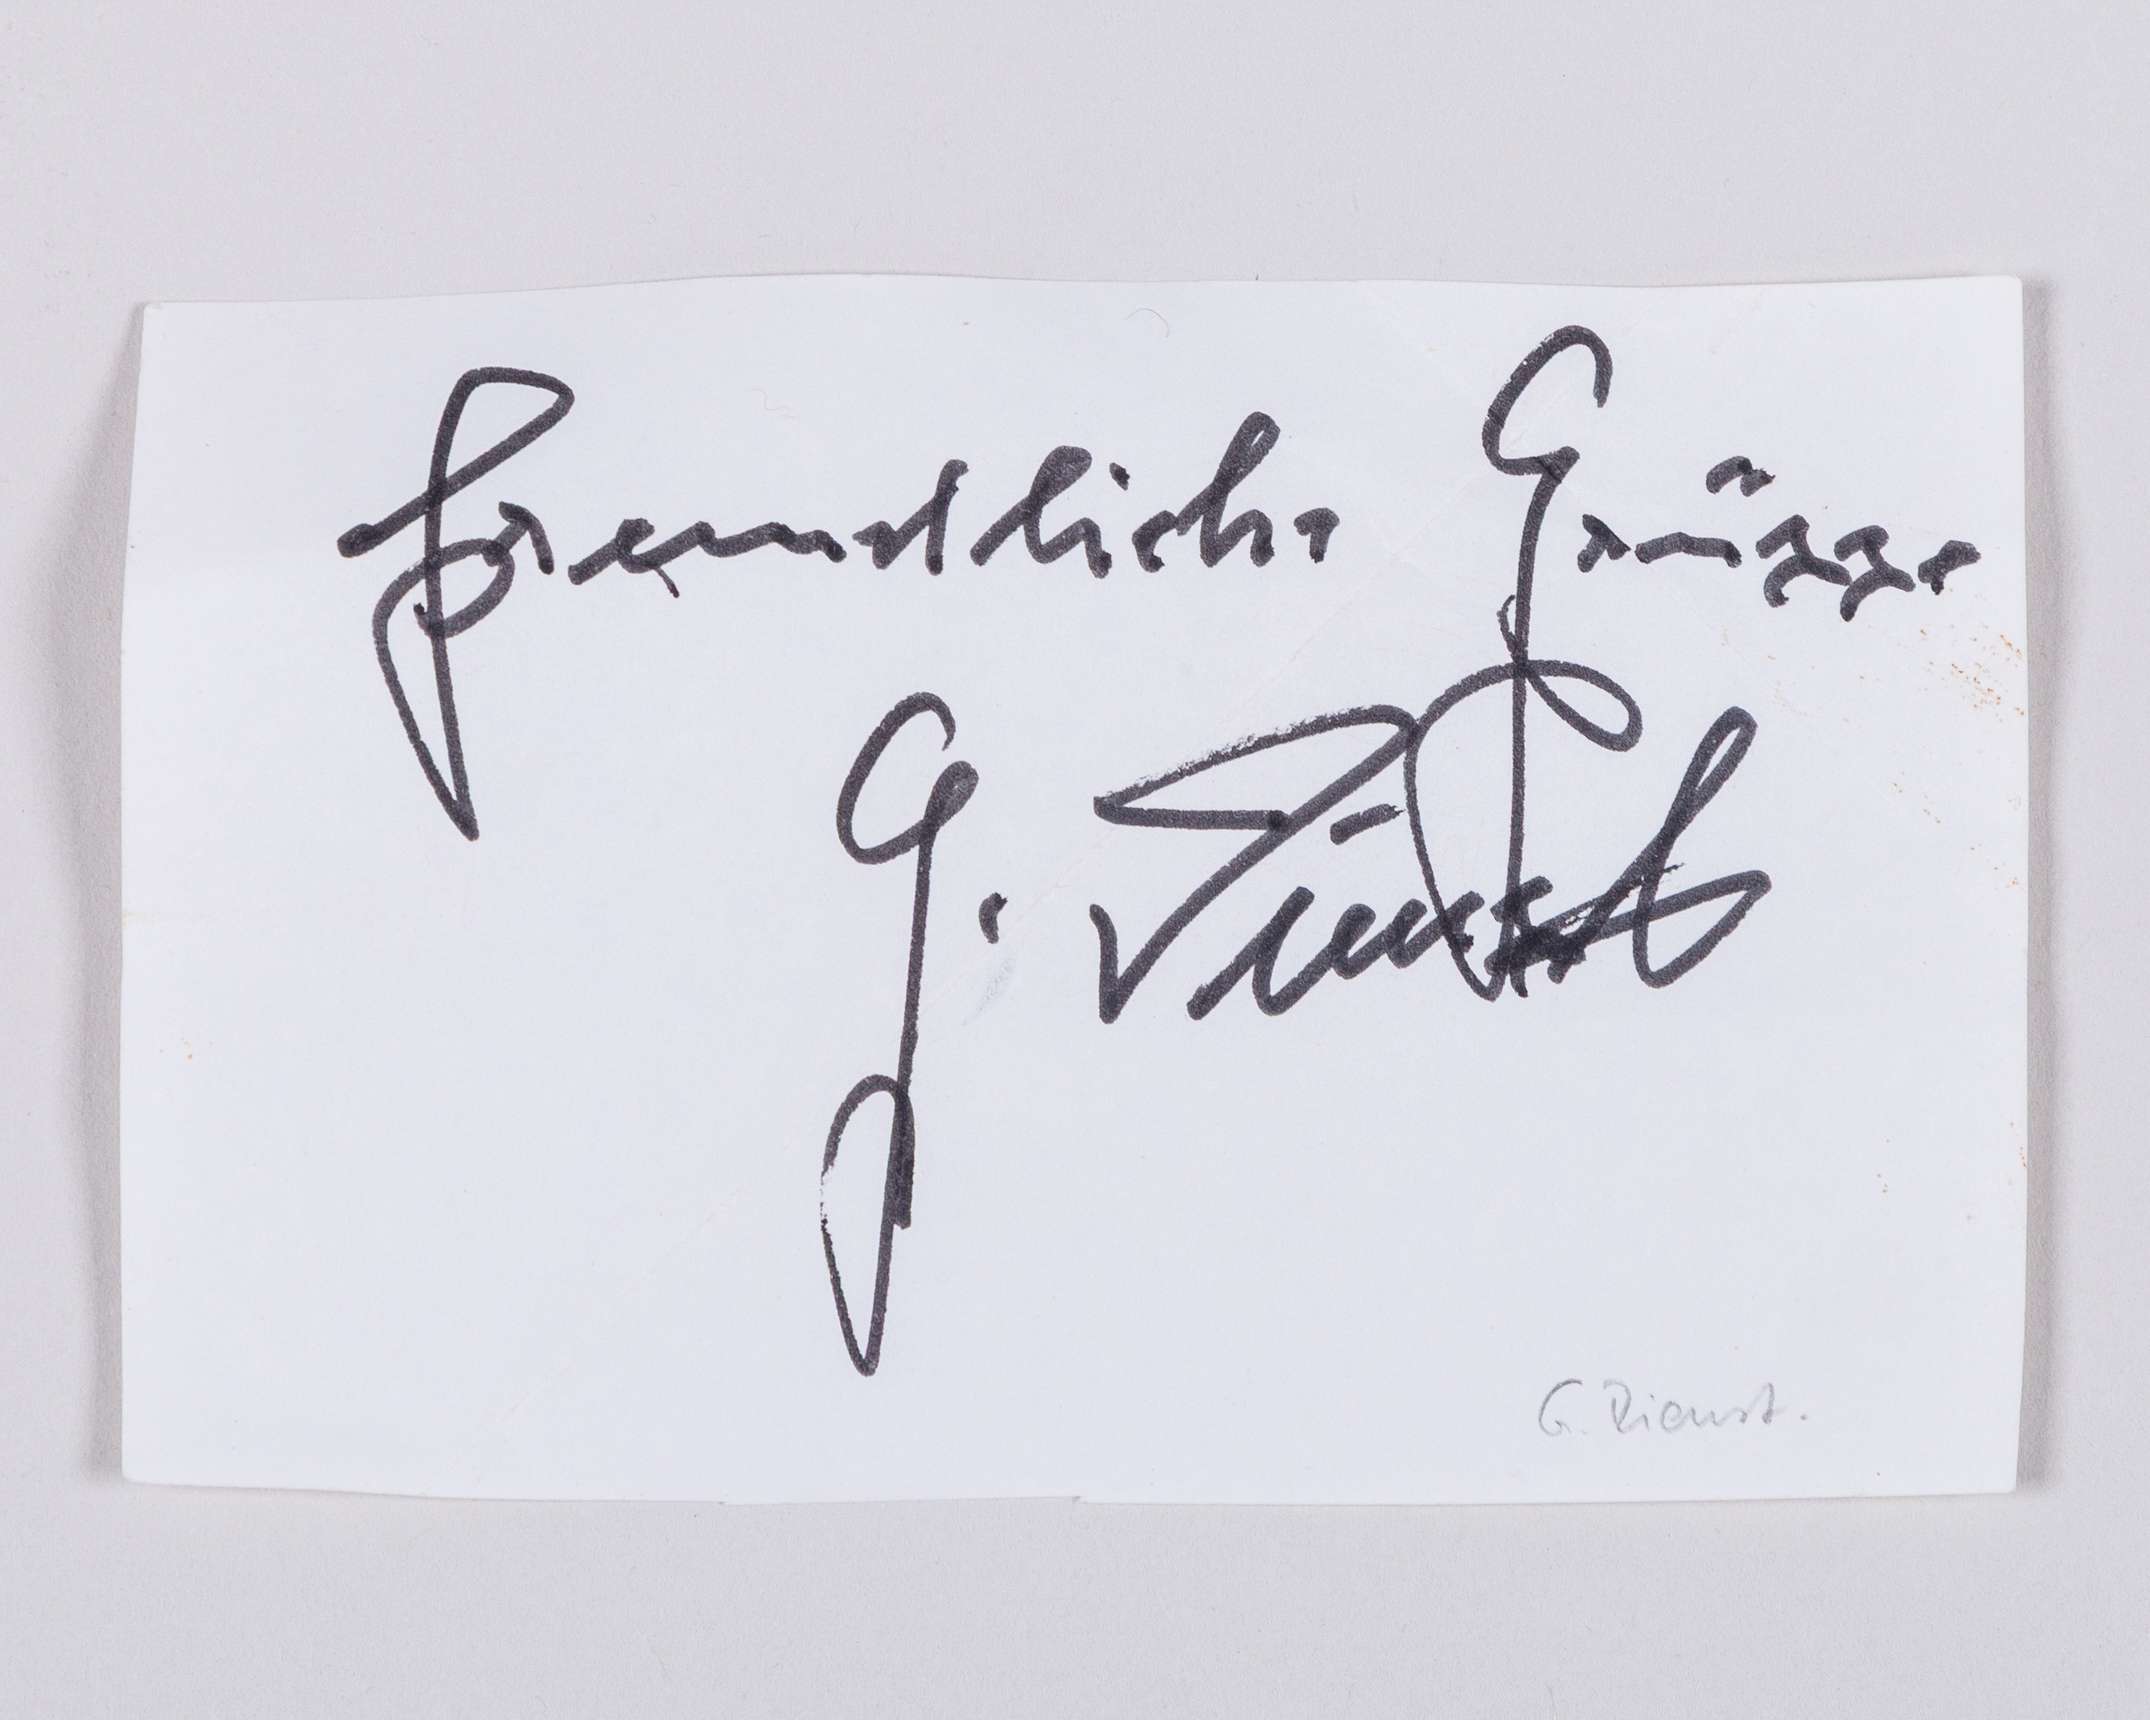 freundliche Grüsse
G. Dienst
G. Dienst.